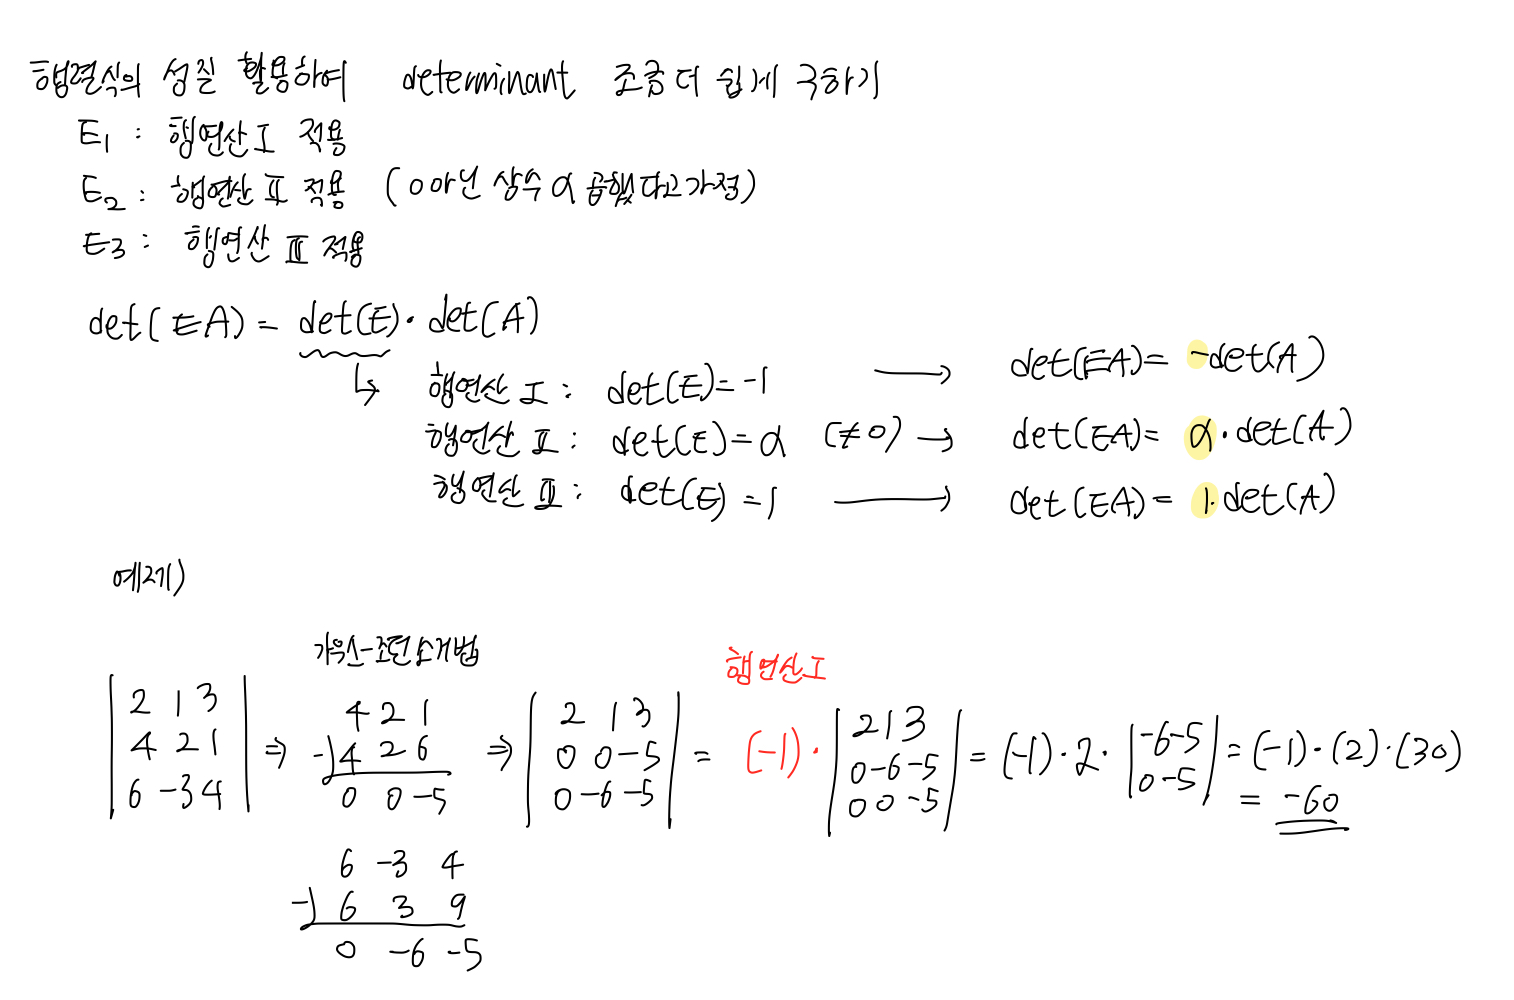 행렬식의 성질 활용하여 determinant 조금 더 쉽게 구하기
E1 : 행연산 I 적용
E2 : 행연산 II 적용 (0 아닌 상수 α 곱했다고 가정)
E3 : 행연산 III 적용
det(EA) = det(E)·det(A)
↳ 행연산 I : det(E) = -1 → det(EA) = -det(A)
행연산 II : det(E) = α (≠0) → det(EA) = α·det(A)
행연산 III : det(E) = 1 → det(EA) = 1·det(A)
예제)
가우스-조던 소거법
행연산 I
| 2 1 3 |
| 4 2 1 |
| 6 -3 4 |
⇒
4 2 1
-) 4 2 6
0 0 -5
6 -3 4
-) 6 3 9
0 -6 -5
⇒
| 2 1 3 |
| 0 0 -5 |
| 0 -6 -5 |
= (-1)·
| 2 1 3 |
| 0 -6 -5 |
| 0 0 -5 |
= (-1)·2·
| -6 -5 |
| 0 -5 |
= (-1)·(2)·(30)
= -60